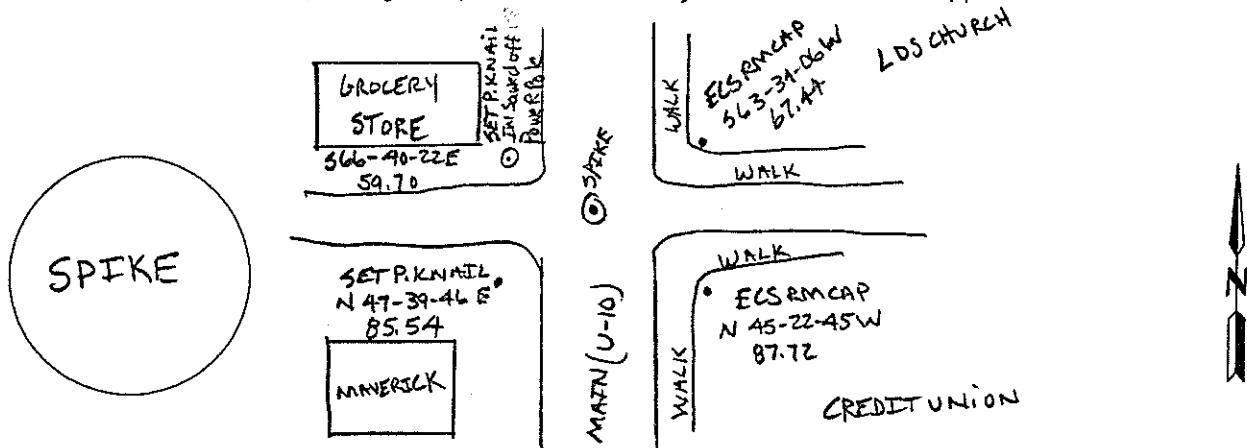 GROCERY
STORE
S66-40-22E
59.70
SET P.K NAIL
IN
Power Pole
SPIKE
WALK
ECS RM CAP
S63-34-06W
67.44
LDS CHURCH
WALK
SPIKE
SET P.K NAIL
N 47-39-46 E
85.54
MAVERICK
MAIN (U-10)
WALK
WALK
ECS RM CAP
N 45-22-45 W
87.72
CREDIT UNION
N